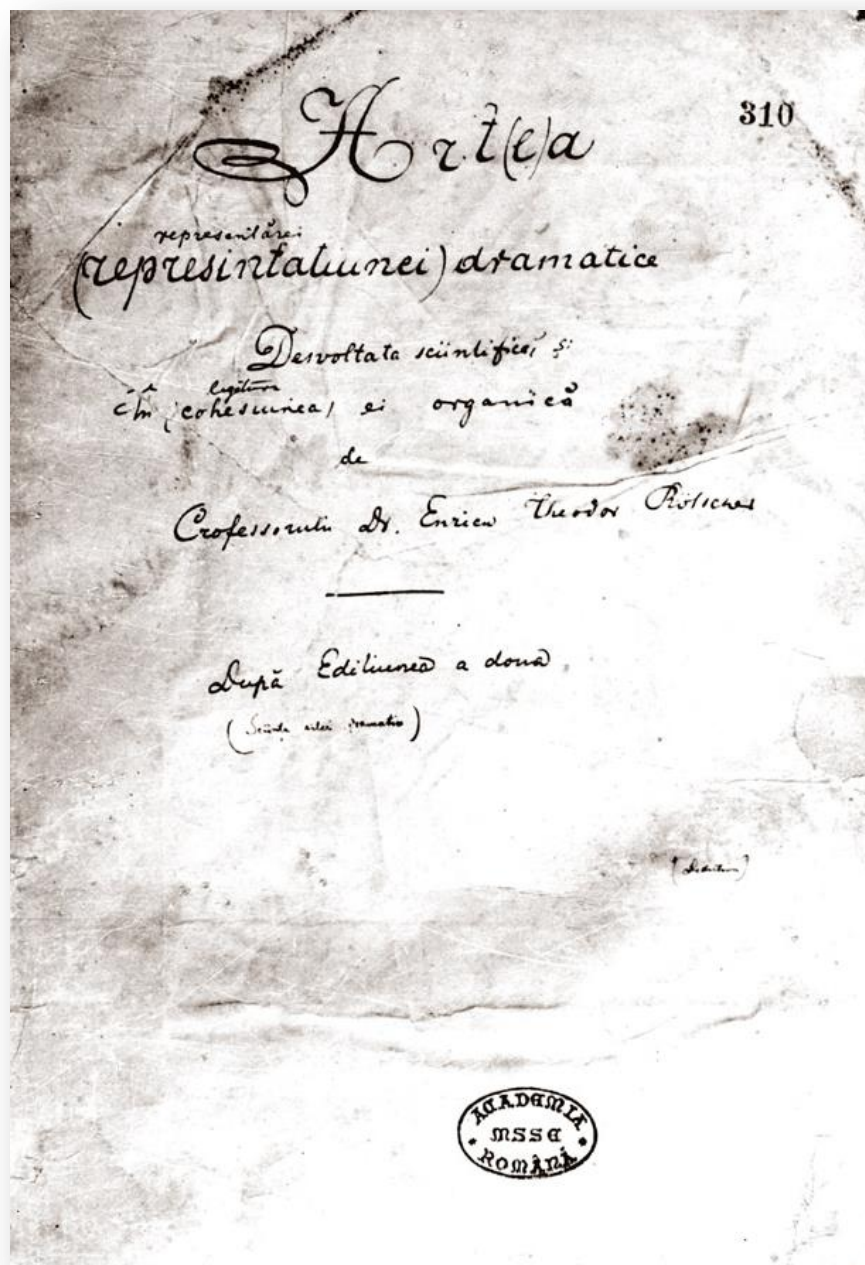 310
Art(e)a
representărei
(represintatiunei) dramatice
Desvoltata sciintifică și
în legătura
(cohesiunea) ei organică
de
Professorulu Dr. Enricu Theodor Rötscher
După Editiunea a doua
(Sciința artei dramatice)
ACADEMIA
MSSE
ROMÂNĂ